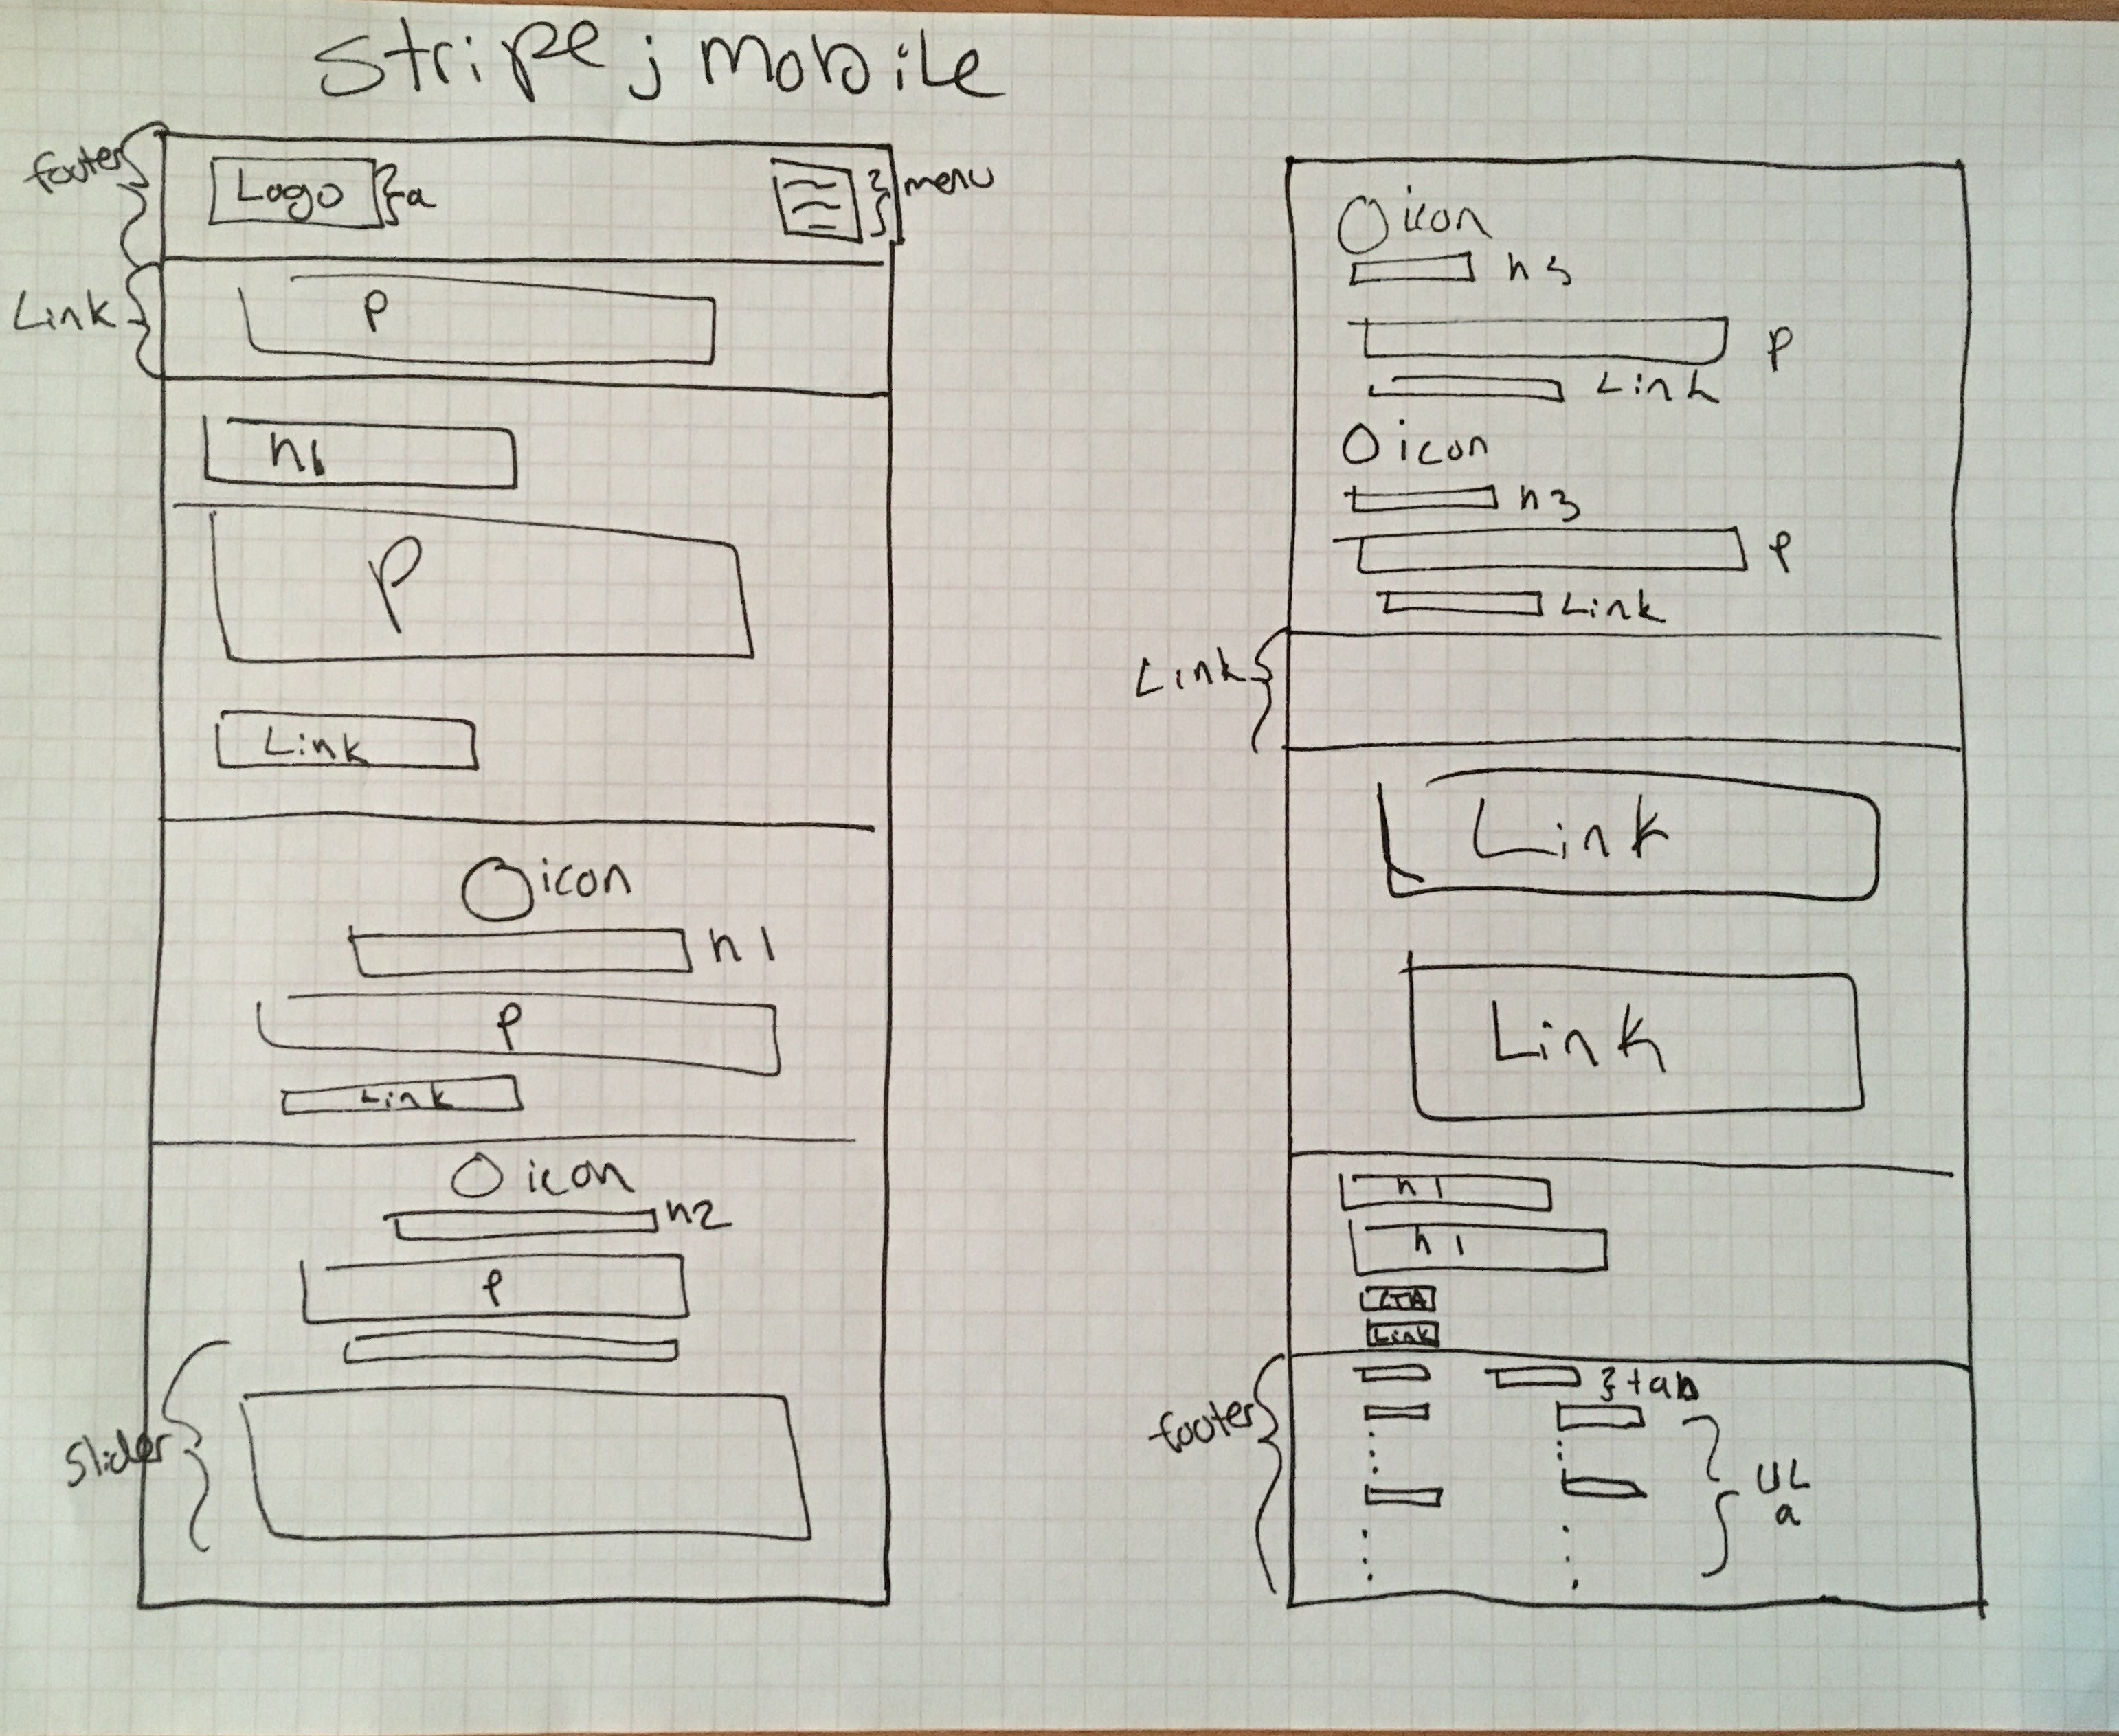 Stripe j mobile
footer
Logo }a
}menu
Link
p
h1
p
Link
icon
h1
p
Link
icon
h2
p
slider
icon
h3
p
Link
icon
h3
p
Link
Link
Link
Link
h1
h1
CTA
Link
footer
}tab
UL
a